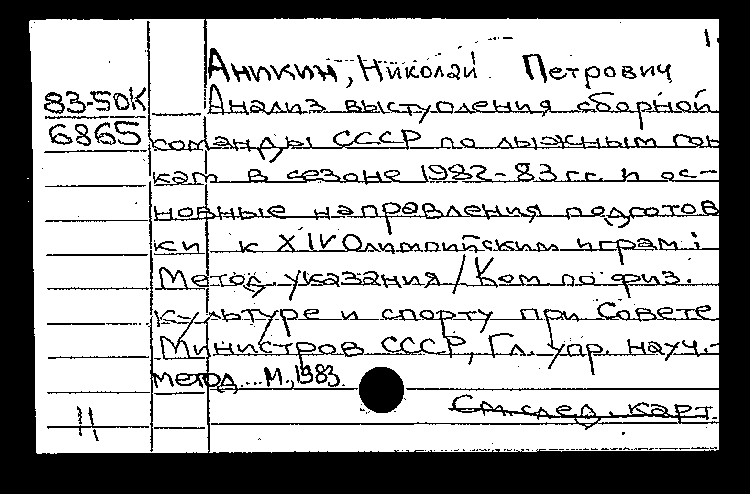 1.
Аникин, Николай Петрович
83-50К Анализ выступления сборной
6865 команды СССР по лыжным гон
кам в сезоне 1982-83 гг. и ос-
новные направления подготов
ки к XIV Олимпийским играм:
Метод. указания / Ком. по физ.
культуре и спорту при Совете
Министров СССР, Гл. упр. науч.-
метод... М., 1983.
11 См. след. карт.